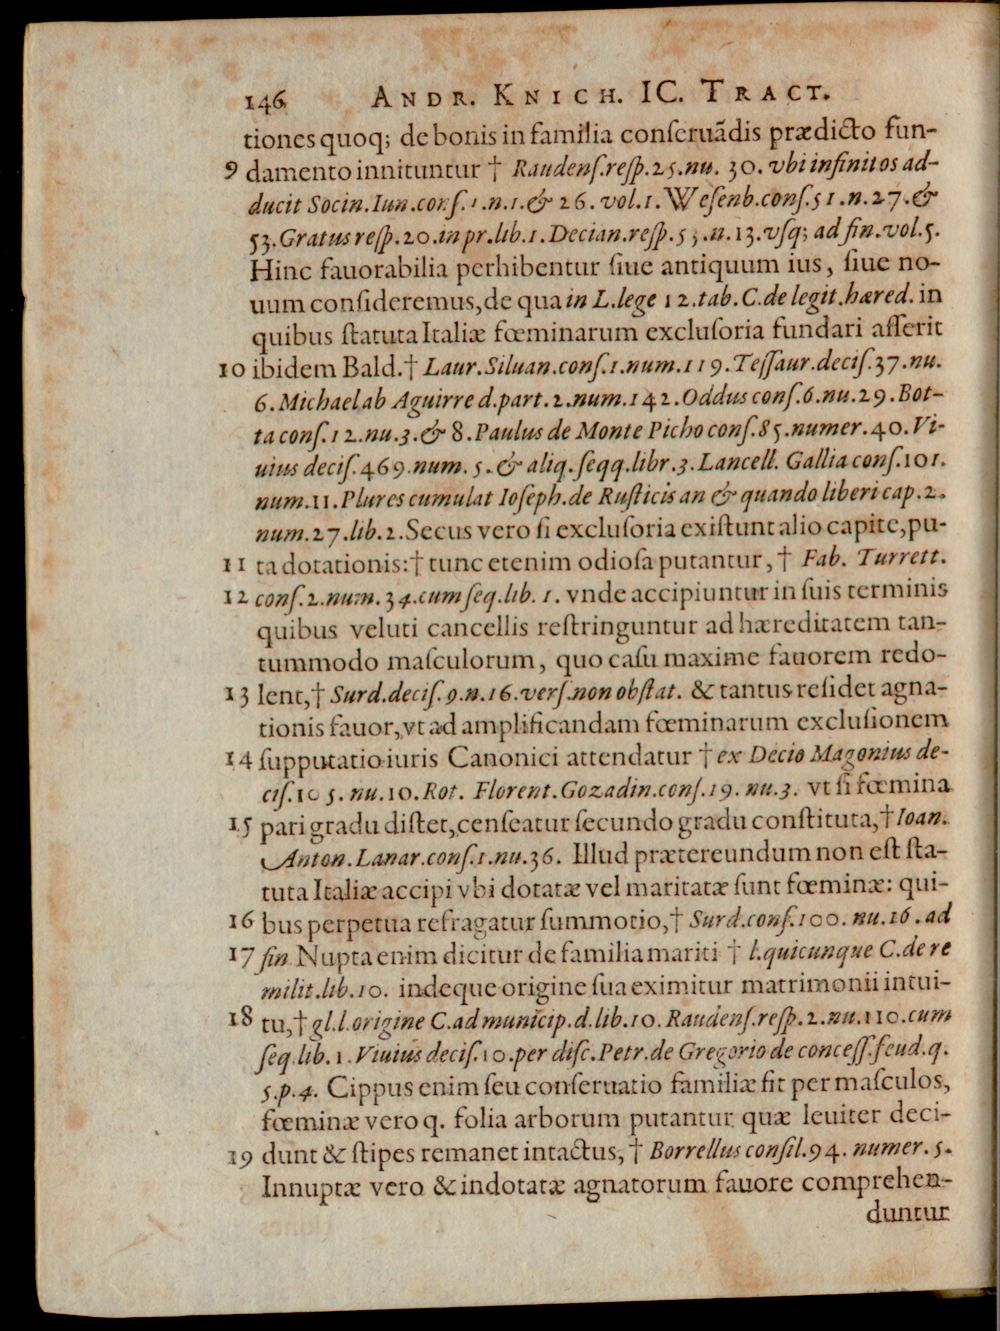 146 ANDR. KNICH. IC. TRACT.
tiones quoq; de bonis in familia conſeruādis prædicto fun-
9 damento innituntur † Raudenſ. reſp. 25. nu. 30. vbi infinitos ad-
ducit Socin. Iun. conſ. 1. n. 1. & 26. vol. 1. Weſenb. conſ. 51. n. 27. &
53. Gratus reſp. 20. in pr. lib. 1. Decian. reſp. n. 13. vſq; ad fin. vol. 5.
Hinc fauorabilia perhibentur ſiue antiquum ius, ſiue no-
uum conſideremus, de qua in L. lege 12. tab. C. de legit. hæred. in
quibus ſtatuta Italiæ fœminarum excluſoria fundari aſſerit
10 ibidem Bald. † Laur. Siluan. conſ. 1. num. 119. Teſſaur. deciſ. 37. nu.
6. Michael ab Aguirre d. part. 2. num. 142. Oddus conſ. 6. nu. 29. Bot-
ta conſ. 12. nu. 3. & 8. Paulus de Monte Picho conſ. 85. numer. 40. Vi-
uius deciſ. 469. num. 5. & aliq. ſeqq. libr. 3. Lancell. Gallia conſ. 101.
num. 11. Plures cumulat Ioſeph. de Ruſticis an & quando liberi cap. 2.
num. 27. lib. 2. Secus vero ſi excluſoria exiſtunt alio capite, pu-
11 ta dotationis: † tunc etenim odioſa putantur, † Fab. Turrett.
12 conſ. 2. num. 34. cum ſeq. lib. 1. vnde accipiuntur in ſuis terminis
quibus veluti cancellis reſtringuntur ad hæreditatem tan-
tummodo maſculorum, quo caſu maxime fauorem redo-
13 lent, † Surd. deciſ. 9. n. 16. verſ. non obſtat. & tantus reſidet agna-
tionis fauor, vt ad amplificandam fœminarum excluſionem
14 ſupputatio iuris Canonici attendatur † ex Decio Magonius de-
ciſ. 105. nu. 10. Rot. Florent. Gozadin. conſ. 19. nu. 3. vt ſi fœmina
15 pari gradu diſtet, cenſeatur ſecundo gradu conſtituta, † Ioan.
Anton. Lanar. conſ. 1. nu. 36. Illud prætereundum non eſt ſta-
tuta Italiæ accipi vbi dotatæ vel maritatæ ſunt fœminæ: qui-
16 bus perpetua refragatur ſummotio, † Surd. conſ. 100. nu. 16. ad
17 fin. Nupta enim dicitur de familia mariti † l. quicunque C. de re
milit. lib. 10. indeque origine ſua eximitur matrimonii intui-
18 tu, † gl. l. origine C. ad municip. d. lib. 10. Raudenſ. reſp. 2. nu. 110. cum
ſeq. lib. 1. Viuius deciſ. 10. per diſc. Petr. de Gregorio de conceſſ. feud. q.
5. p. 4. Cippus enim ſeu conſeruatio familiæ fit per maſculos,
fœminæ vero q. folia arborum putantur quæ leuiter deci-
19 dunt & ſtipes remanet intactus, † Borrellus conſil. 94. numer. 5.
Innuptæ vero & indotatæ agnatorum fauore comprehen-
duntur